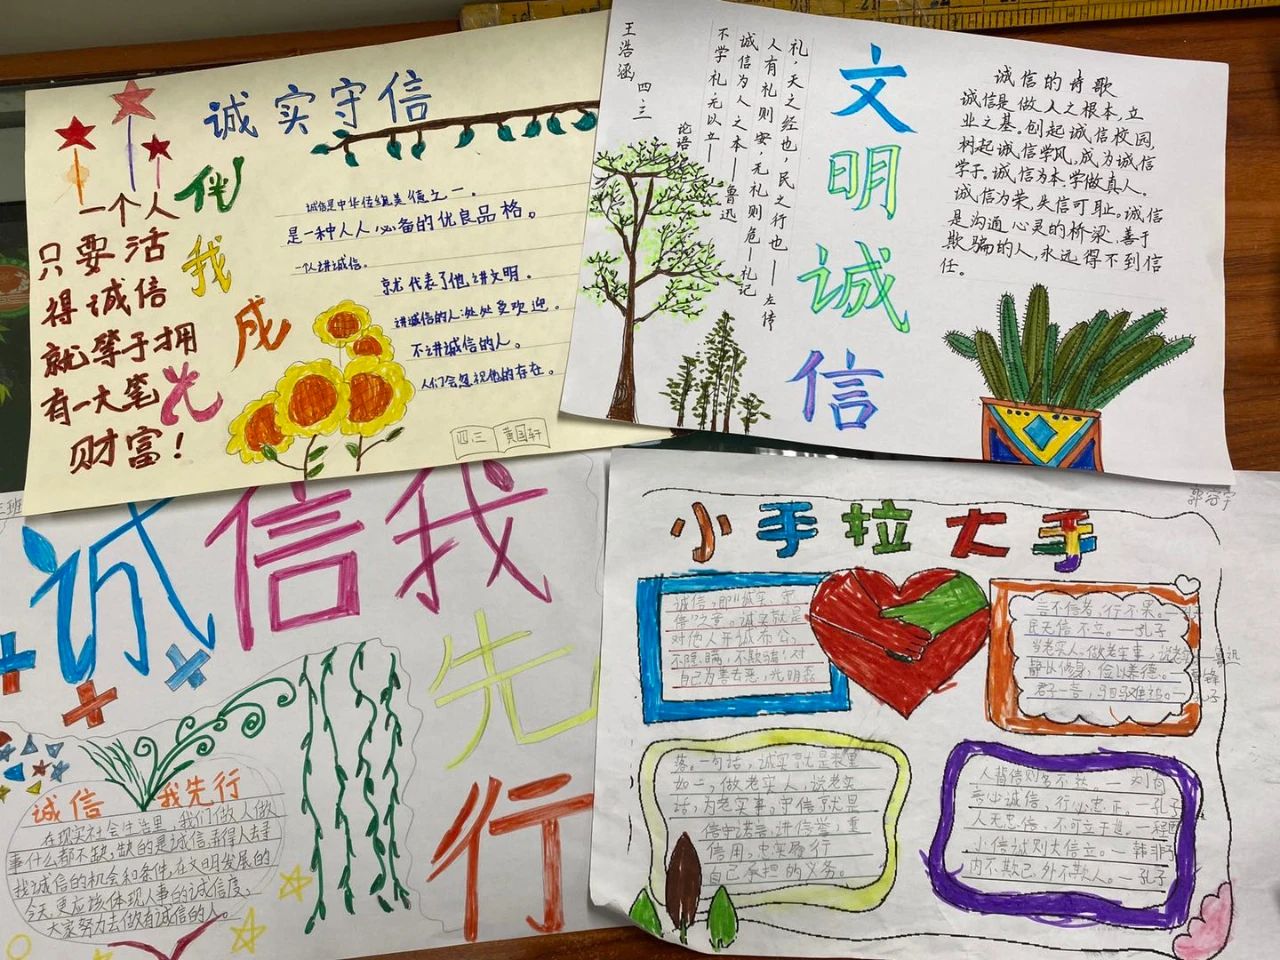 诚实守信
伴
我
成
一个人
只要活
得诚信
就等于拥
有一大笔
财富！
诚信是中华传统美德之一。
是一种人人必备的优良品格。
一个人讲诚信。
就代表了他讲文明。
讲诚信的人：处处受欢迎。
不讲诚信的人。
人们会忽视他的存在。
四三 黄国轩
王浩涵 四三
礼，天之经也，民之行也——左传
人有礼则安，无礼则危—礼记
诚信为人之本—鲁迅
不学礼，无以立——
论语
文
明
诚
信
诚信的诗歌
诚信是做人之根本，立
业之基。创起诚信校园，
树起诚信学风，成为诚信
学子。诚信为本，学做真人。
诚信为荣，失信可耻。诚信
是沟通心灵的桥梁，善于
欺骗的人，永远得不到信
任。
三班
诚信我
先
行
诚信 我先行
在现实社会生活里，我们做人做
事什么都不缺，缺的是诚信，弄得人去寻
找诚信的机会和条件，在文明发展的
今天，更应该体现人事的诚信度，
大家努力去做有诚信的人。
小手拉大手
诚信，即"诚实、守
信"之意。诚实就是
对他人开诚布公，
不隐瞒，不欺骗！对
自己为善去恶，光明磊
言不信者，行不果。—
民无信不立。—孔子
当老实人。做老实事，说老实
静以修身，俭以养德。—
君子一言，驷马难追。—
落。一句话，诚实就是表里
如一，做老实人，说老实
话，办老实事。守信就是
信守诺言，讲信誉，重
信用，忠实履行
自己承担的义务。
人背信则名不达。—刘向
言必诚信，行必忠正。—孔子
人无忠信，不可立于世。—程颐
小信诚则大信立。—韩非子
内不欺己，外不欺人。—孔子